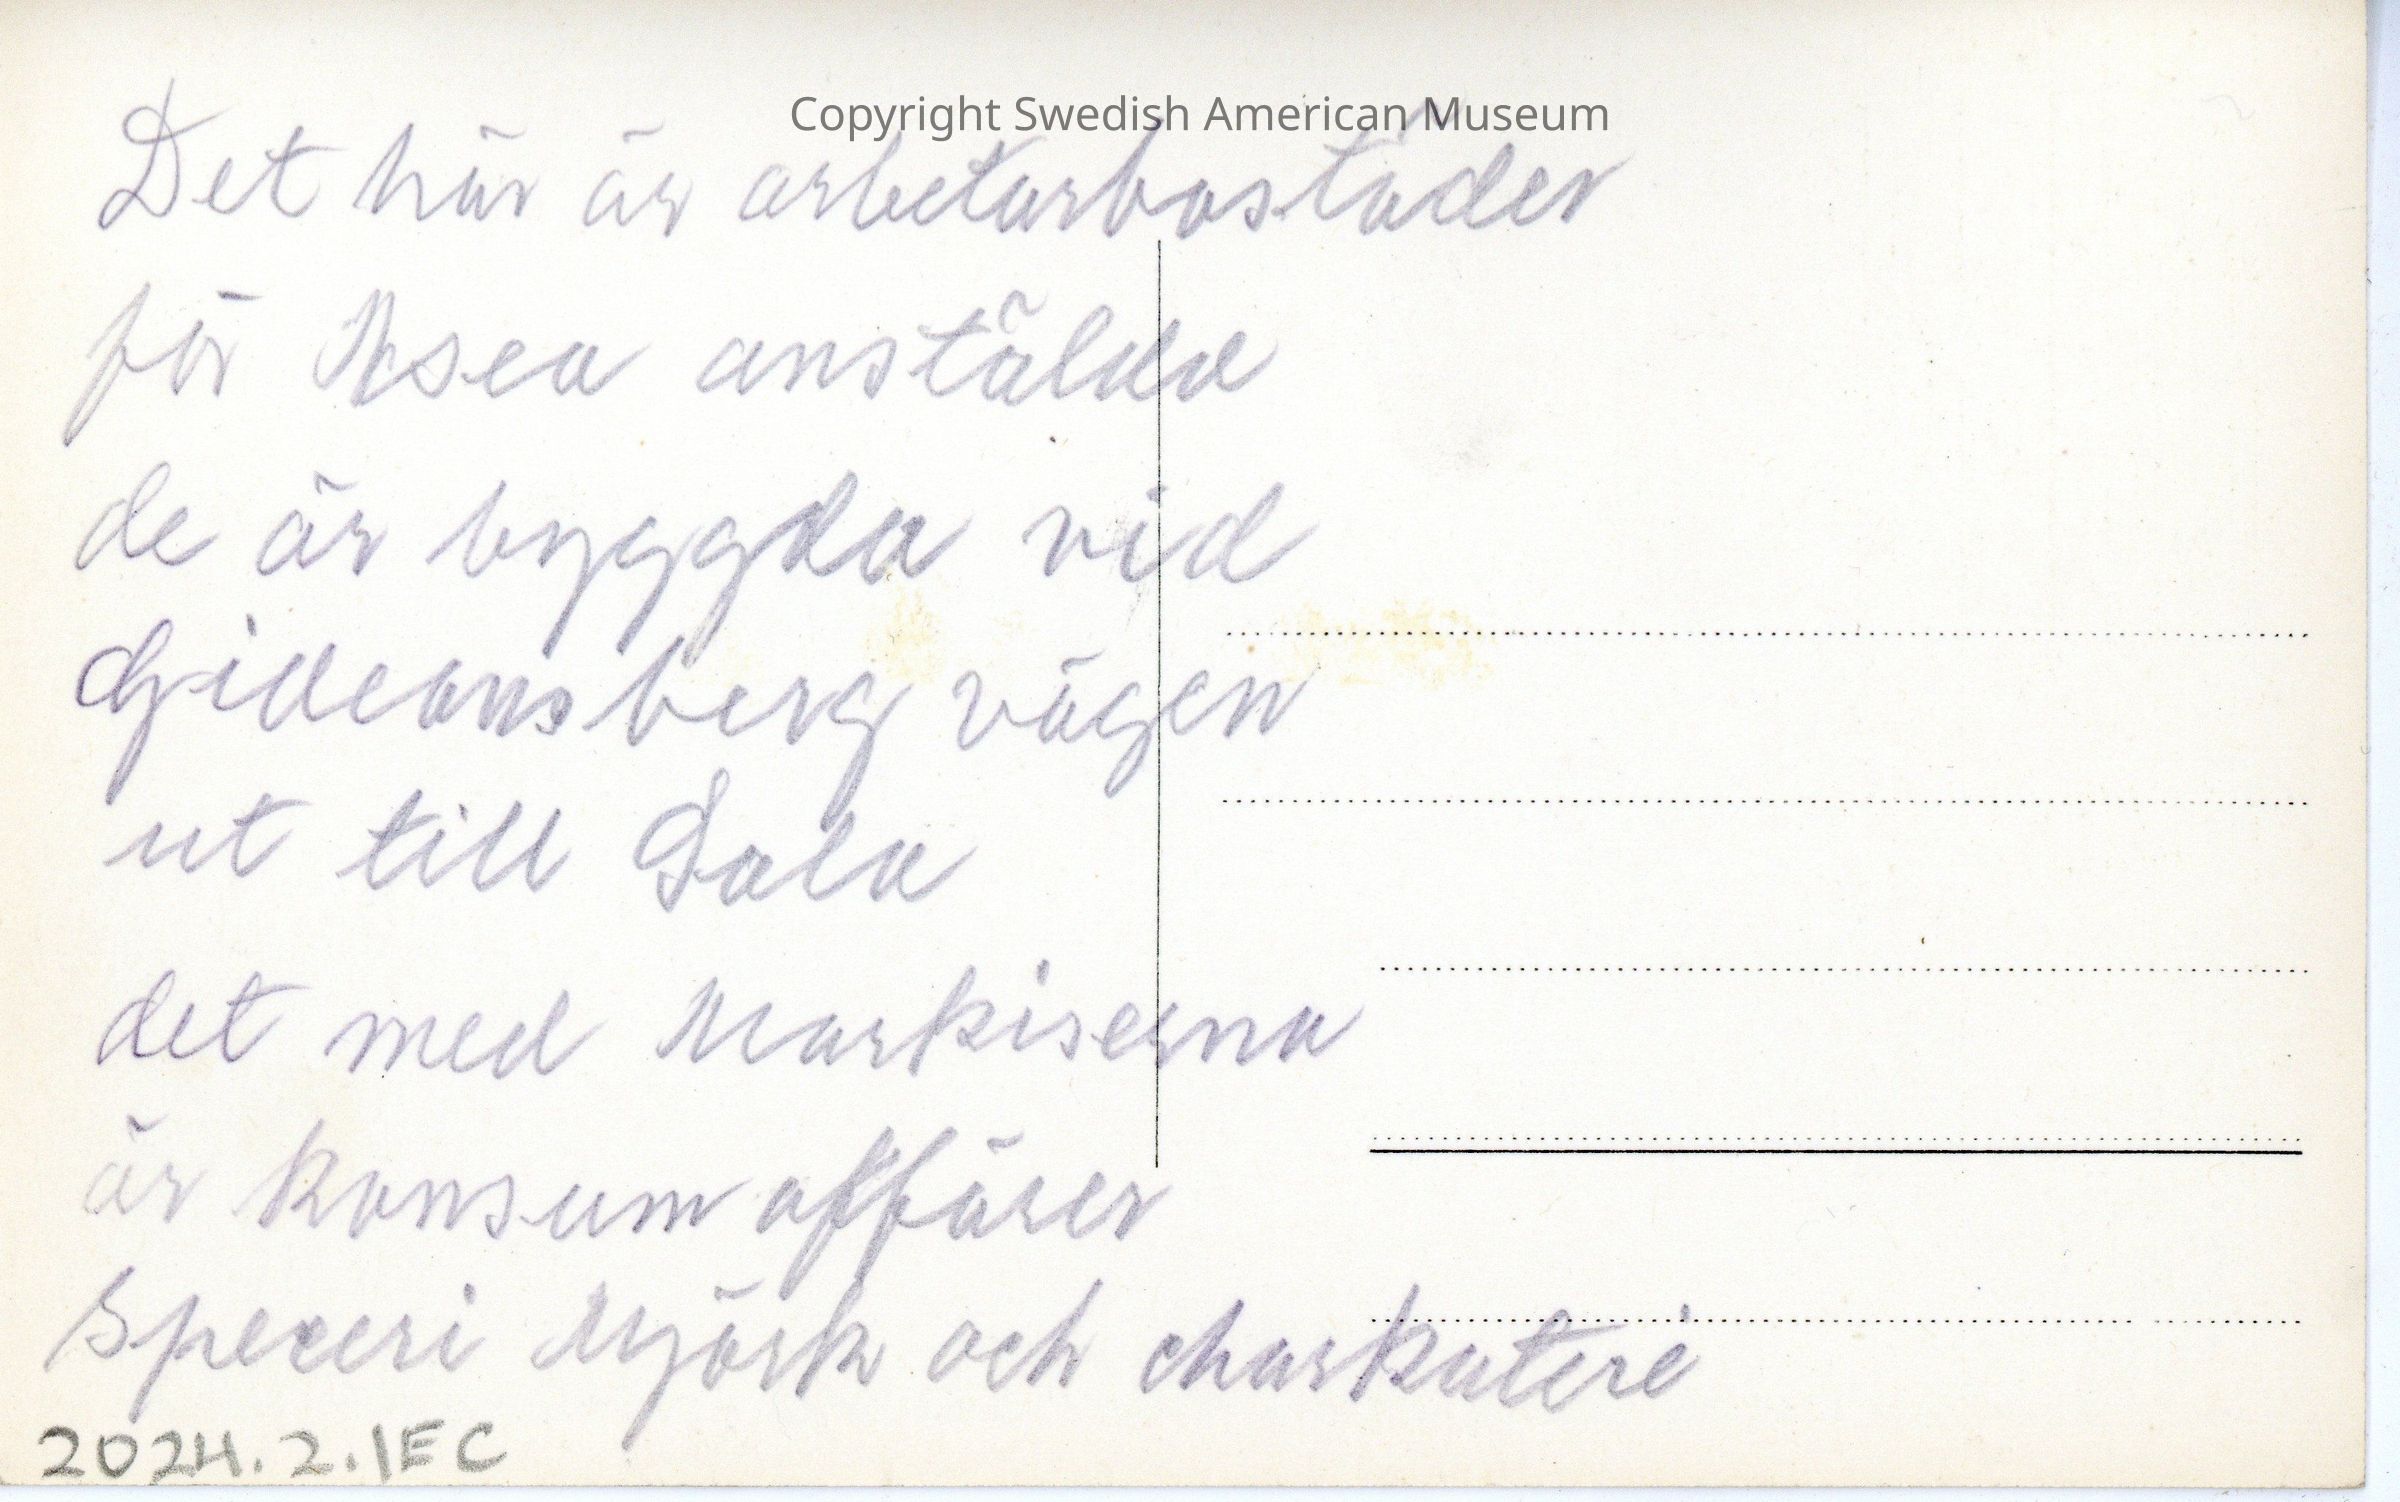 Copyright Swedish American Museum
Det här är arbetarbostäder
för Asea anstälda
de är byggda vid
Gideonsberg vägen
ut till Sala
det med Markiserna
är Konsum affärer
Speceri Mjörk och charkuteri
2024.2.1EC